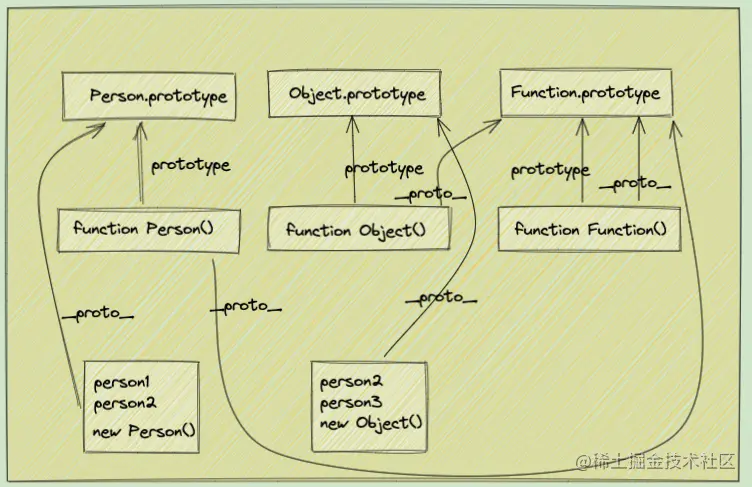 Person.prototype
Object.prototype
Function.prototype
prototype
prototype
prototype
__proto__
__proto__
function Person()
function Object()
function Function()
__proto__
__proto__
__proto__
person1
person2
new Person()
person2
person3
new Object()
@稀土掘金技术社区